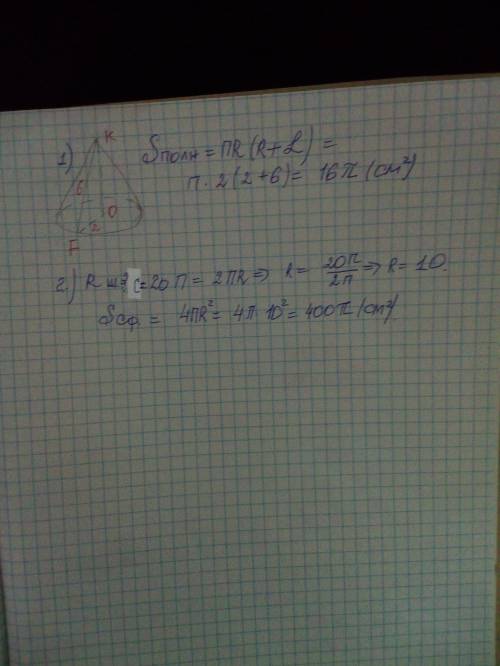 1) K 6 O 2 F
Sполн = ПR(R+L) =
П·2(2+6) = 16π (см²)
2.) R ш-? C=20П = 2ПR ⇒ R = 20П/2П ⇒ R = 10.
Sсф. = 4ПR² = 4π·10² = 400π (см²)